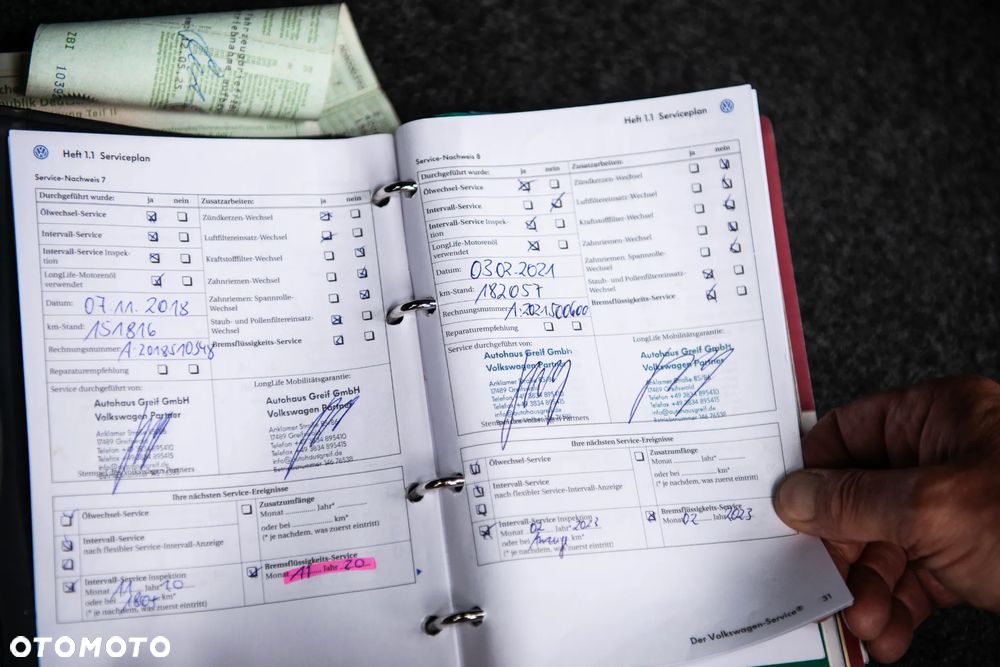 ZBI 1039
12.05.25
ung Teil II
Heft 1.1 Serviceplan
Service-Nachweis 7
Durchgeführt wurde: ja nein Zusatzarbeiten: ja nein
Ölwechsel-Service Zündkerzen-Wechsel
Intervall-Service Luftfiltereinsatz-Wechsel
Intervall-Service Inspek-
tion Kraftstofffilter-Wechsel
LongLife-Motorenöl
verwendet Zahnriemen-Wechsel
Datum: 07.11.2018 Zahnriemen: Spannrolle-
Wechsel
km-Stand: 151816 Staub- und Pollenfiltereinsatz-
Wechsel
Rechnungsnummer: A.2018510348 Bremsflüssigkeits-Service
Reparaturempfehlung
Service durchgeführt von: LongLife Mobilitätsgarantie:
Autohaus Greif GmbH Autohaus Greif GmbH
Volkswagen Partner Volkswagen Partner
Anklamer Straße 85/86 Anklamer Straße 85/86
17489 Greifswald 17489 Greifswald
Telefon +49 3834 895410 Telefon +49 3834 895410
Telefax +49 3834 895415 Telefax +49 3834 895415
Stempel des Volkswagen Partners Betriebsnummer 146 76538
Ihre nächsten Service-Ereignisse
Ölwechsel-Service Zusatzumfänge
Monat ........ Jahr* ........
oder bei ........ km*
(* je nachdem, was zuerst eintritt)
Intervall-Service
nach flexibler Service-Intervall-Anzeige
Intervall-Service Inspektion
Monat 11 Jahr 20
oder bei 180t km*
(* je nachdem, was zuerst eintritt)
Bremsflüssigkeits-Service
Monat 11 Jahr 20
Heft 1.1 Serviceplan
Service-Nachweis 8
Durchgeführt wurde: ja nein Zusatzarbeiten: ja nein
Ölwechsel-Service Zündkerzen-Wechsel
Intervall-Service Luftfiltereinsatz-Wechsel
Intervall-Service Inspek-
tion Kraftstofffilter-Wechsel
LongLife-Motorenöl
verwendet Zahnriemen-Wechsel
Datum: 03.02.2021 Zahnriemen: Spannrolle-
Wechsel
km-Stand: 182057 Staub- und Pollenfiltereinsatz-
Wechsel
Rechnungsnummer: A.2021500600 Bremsflüssigkeits-Service
Reparaturempfehlung
Service durchgeführt von: LongLife Mobilitätsgarantie:
Autohaus Greif GmbH Autohaus Greif GmbH
Volkswagen Partner Volkswagen Partner
Anklamer Straße 85/86 Anklamer Straße 85/86
17489 Greifswald 17489 Greifswald
Telefon +49 3834 895410 Telefon +49 3834 895410
Telefax +49 3834 895415 Telefax +49 3834 895415
info@autohausgreif.de info@autohausgreif.de
Betriebsnummer 146 76538
Ihre nächsten Service-Ereignisse
Ölwechsel-Service Zusatzumfänge
Monat ........ Jahr* ........
oder bei ........ km*
(* je nachdem, was zuerst eintritt)
Intervall-Service
nach flexibler Service-Intervall-Anzeige
Intervall-Service Inspektion
Monat 02 Jahr 2023
oder bei km*
(* je nachdem, was zuerst eintritt)
Bremsflüssigkeits-Service
Monat 02 Jahr 2023
31
Der Volkswagen-Service®
OTOMOTO